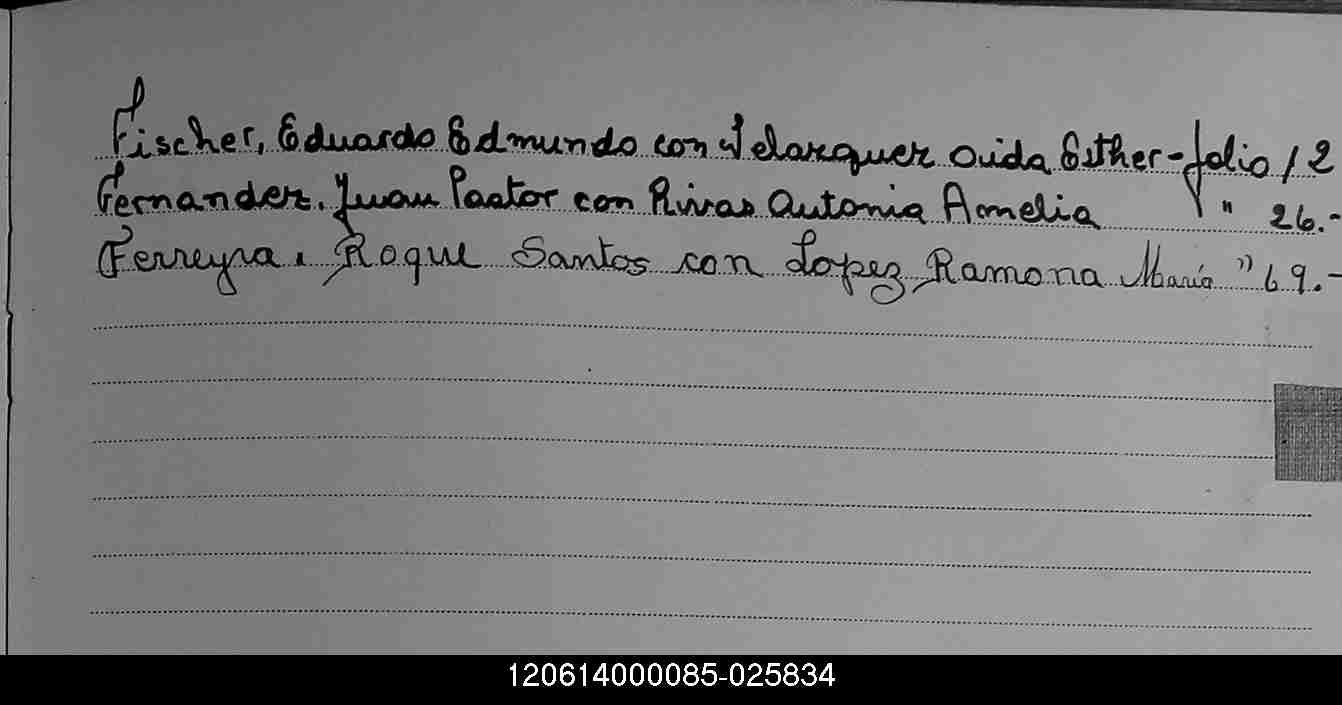 Fischer, Eduardo Edmundo con Velazquez Ouida Esther - folio 12
Fernandez. Juan Pastor con Rivas Antonia Amelia " 26.-
Ferreyra. Roque Santos con Lopez Ramona María " 69.-
120614000085-025834